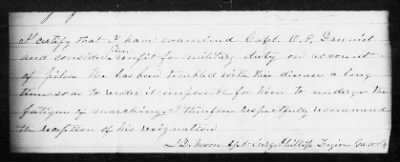 I certify that I have examined Capt. W. P. Danniel
and consider him unfit for military duty on account
of piles he has been troubled with this disease a long
time so as to render it impossible for him to undergo the
fatigue of marching. I therefore respectfully recommend
the reception of his resignation
S. D. Moon Asst Surg. Phillips Legion Ga